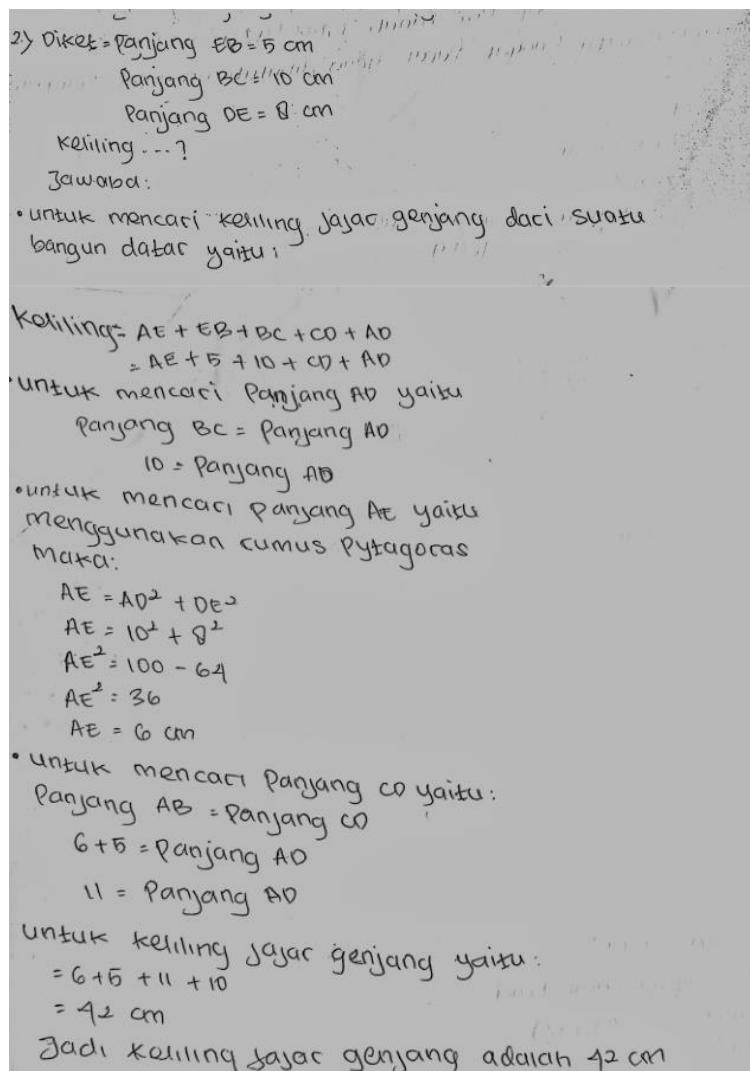 2.) Diket = Panjang EB = 5 cm
Panjang BC = 10 cm
Panjang DE = 8 cm
Keliling ... ?
Jawaba:
• untuk mencari keliling jajar genjang dari suatu
bangun datar yaitu:
Keliling = AE + EB + BC + CD + AD
= AE + 5 + 10 + CD + AD
• untuk mencari Panjang AD yaitu
Panjang BC = Panjang AD
10 = Panjang AD
• untuk mencari panjang AE yaitu
menggunakan rumus Pytagoras
maka:
AE = AD² + DE²
AE = 10² + 8²
AE² = 100 - 64
AE² = 36
AE = 6 cm
• untuk mencari Panjang CD yaitu:
Panjang AB = Panjang CD
6+5 = Panjang AD
11 = Panjang AD
untuk keliling jajar genjang yaitu:
= 6+5 +11 +10
= 42 cm
Jadi keliling jajar genjang adalah 42 cm